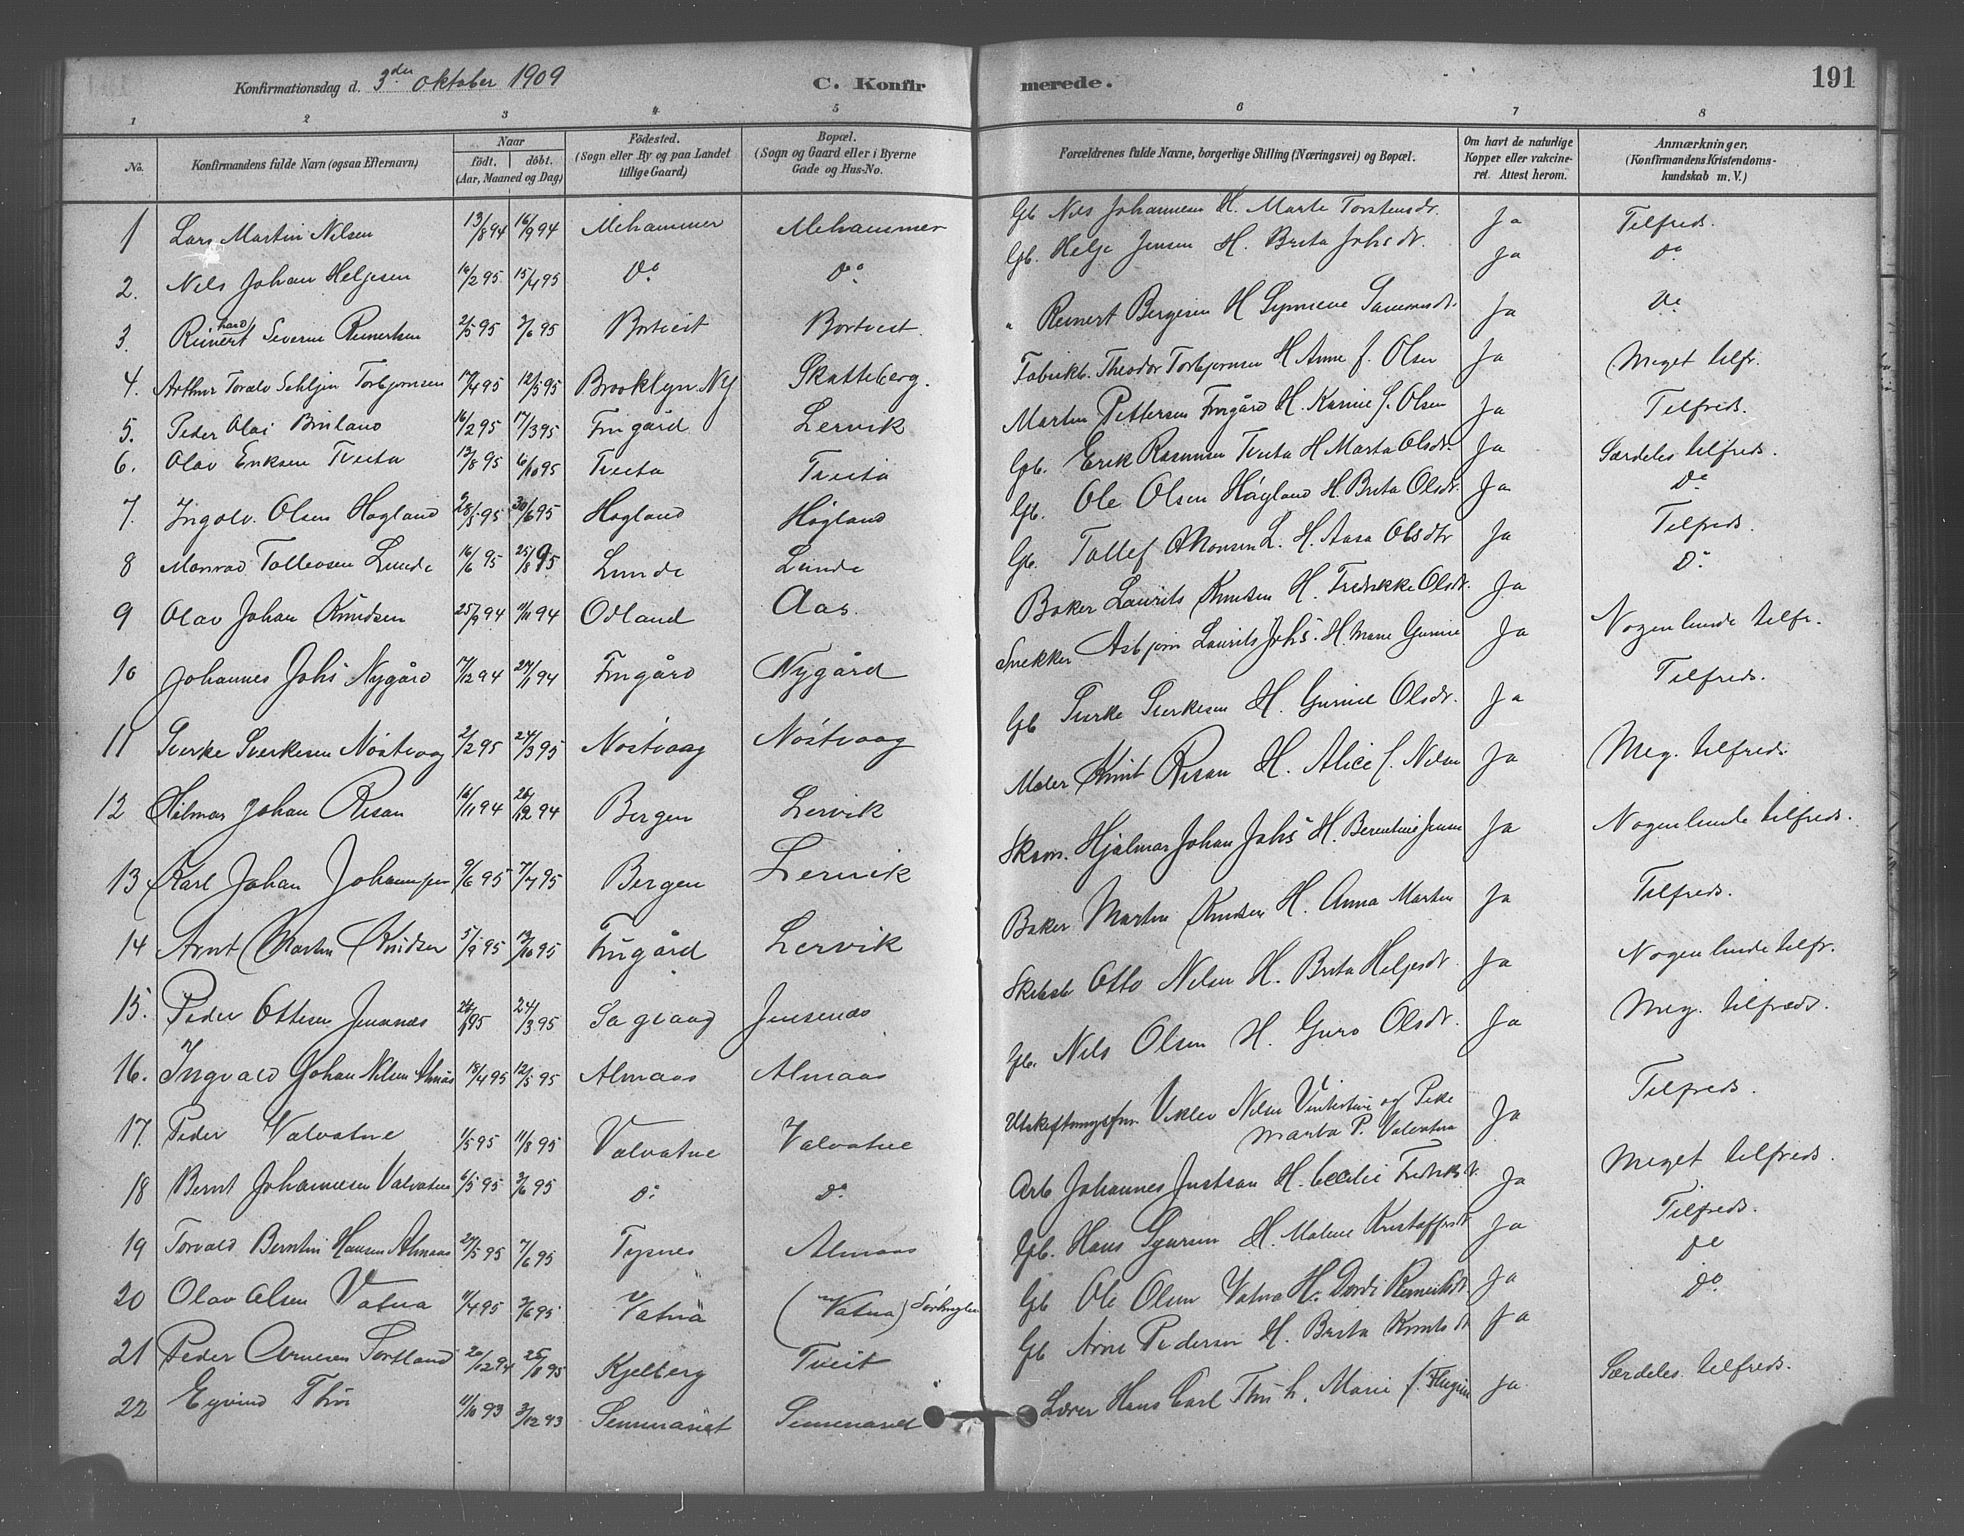 Konfirmationsdag d. 3die oktober 1909 C. Konfirmerede. 191
1 2 3 4 5 6 7 8
No. Konfirmandens fulde Navn (ogsaa Efternavn) Naar født. døbt. (Aar, Maaned og Dag) Fødested. (Sogn eller By og paa Landet tillige Gaard) Bopæl. (Sogn og Gaard eller i Byerne Gade og Hus-No. Forældrenes fulde Navne, borgerlige Stilling (Næringsvei) og Bopæl. Om havt de naturlige Kopper eller vakcineret. Attest herom. Anmærkninger. (Konfirmandens Kristendomskundskab m. V.)
1 Lars Martin Nilsen 13/8 94 16/9 94 Mehammer Mehammer Gb Nils Johannesen H. Marte Torstensdr. Ja Tilfreds.
2. Nils Johan Helgesen 16/2 95 15/4 95 Do Do Gb. Helge Jensen H. Brita Johsdt. Ja Do
3. Reinert hard Severin Reinertsen 2/5 95 3/6 95 Bortveit Bortveit " Reinert Bergesen H Synneve Ja Do
4. Arthur Torbjørnsen 17/4 95 12/5 95 Brooklyn. NY Skatteberg. Fabrikb. Theodor Torbjørnsen H Anne f. Olsen Ja Meget tilfr.
5. Peder Olai 16/2 95 17/3 95 Frugård Lervik Martin Pettersen Frugård H. Karine f. Olsen Ja Tilfreds.
6. Olav Eriksen Tveita 13/8 95 6/10 95 Tveita Tveita Gb. Erik Rasmusen Tveita H Marta Olsdt. Ja Særdeles tilfreds.
7. Ingolv. Olsen Høgland 28/5 95 30/6 95 Høgland Høgland Gb. Ole Olsen Høyland H. Brita Olsdt. Ja Do
8 Monrad Tollevsen Lunde 16/6 95 25/8 95 Lunde Lunde Gb. Tollef L. H. Aasa Olsdtr Ja Tilfreds.
9 Olav Johan Knudsen 25/9 94 11/11 94 Odland Aas. Baker Laurits Knudsen H. Fredrikke Olsdt. Ja Do
10 Johannes Johs Nygård 17/12 94 27/1 94 Frugård Nygård Snekker Asbjørn Laurits Johs. H. Mare Gurine Ja Nogenlunde tilfr.
11 Sverke Sverkesen Nøstvaag 2/2 95 24/3 95 Nøstvaag Nøstvaag Gb Sverke Sverkesen H. Gurine Olsdt. Ja Tilfreds.
12 Hilmar Johan Risan 16/11 94 26/12 94 Bergen Lervik Maler Knut Risan H. Alice f. Nilsen Ja Meg. tilfreds.
13 Karl Johan Johannesen 9/6 95 7/7 95 Bergen Lervik Skom. Hjalmar Johan Johs H. Berentine Jensen Ja Nogenlunde tilfreds.
14 Arnt Martin Knudsen 5/9 95 13/10 95 Frugård Lervik Baker Martin Knudsen H. Anna Martin Ja Tilfreds.
15. Peder Ottesen Jensanæs 24/3 95 Sagvaag Jensenæs Otto Nilsen H. Brita Helgesdt. Ja Nogenlunde tilfr.
16. Ingvald Johan Nilsen Almås 18/4 95 12/5 95 Almaas Almaas Gb. Nils Olsen H. Guro Olsdt. Ja Meg. tilfreds.
17. Peder Valvatne 1/5 95 11/8 95 Valvatne Valvatne Utskiftningsfm. Nilsen og Pike
Marta P. Valvatna Ja Tilfreds.
18 Bernt Johannesen Valvatne 6/5 95 3/6 95 Do Do Arb Johannes Justsan H. Cecilie Fredriksdt. Ja Meget tilfreds.
19 Torvald Berntin Hansen Almaas 27/5 95 7/6 95 Tysnes Almaas Gb. Hans Sjursen H. Malene Kristoffersdt Ja Tilfreds.
20 Olav Olsen Vatna 11/4 95 3/6 95 Vatna (Vatna) Gb Ole Olsen Vatna H. Dordi Reinertsdt Ja Do
21 Peder Arnesen Sortland 20/12 94 25/1 95 Kjelberg Tveit Gb Arne Pedersen H. Brita Knutsdt Ja Do
22 Eyvind Thu 11/10 93 3/12 93 Seminariet Seminariet Lærer Hans Carl Thu h. Marie f. Ja Særdeles tilfreds.